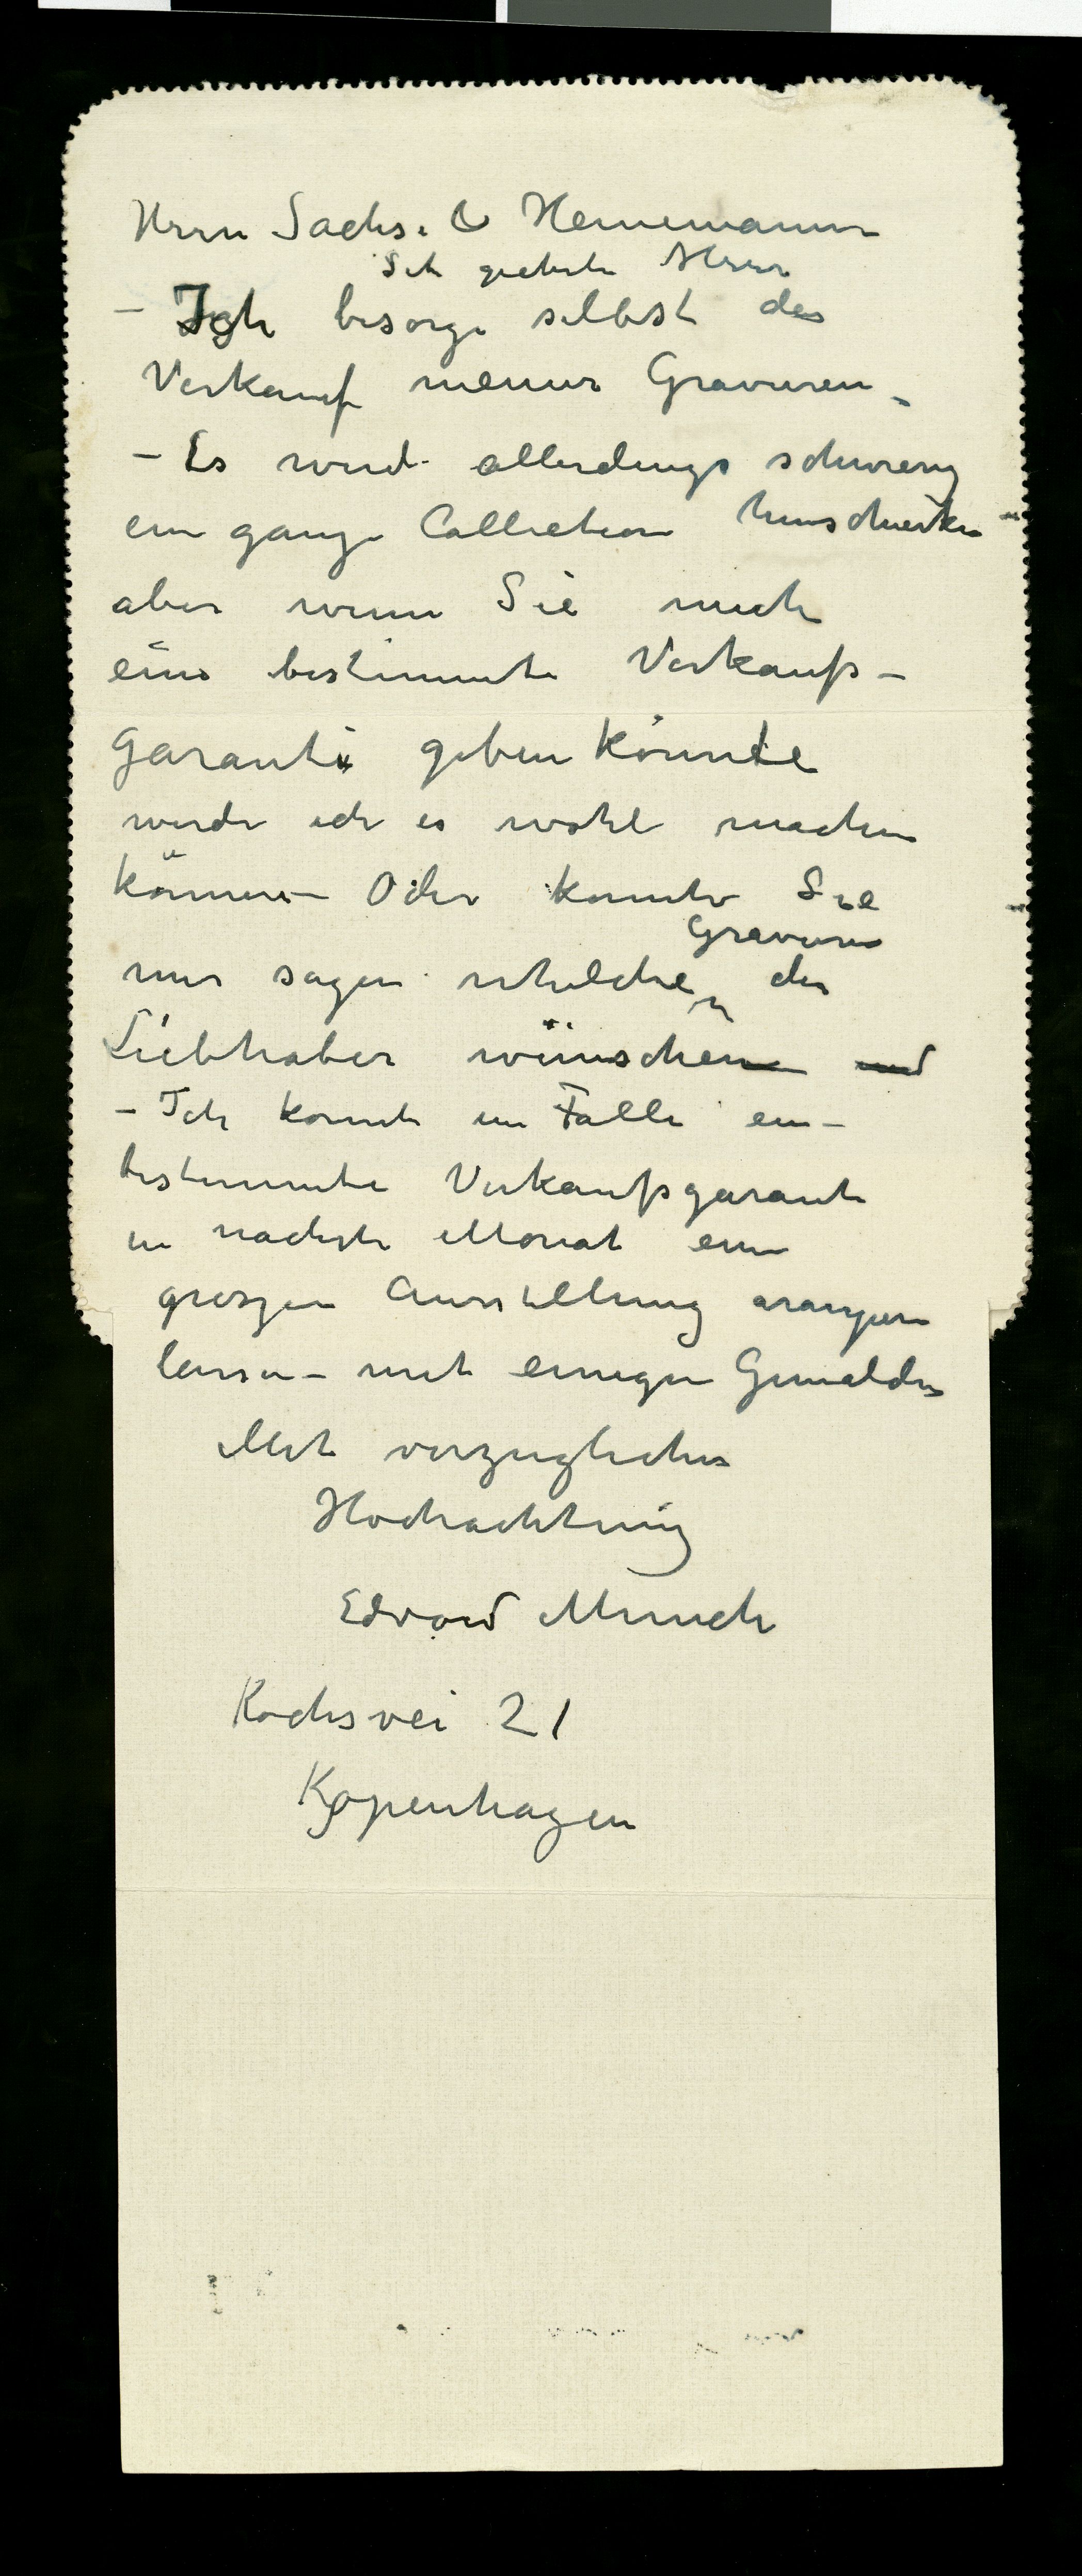 Herrn Sachse & Heinemann
Seh geehrte Herr
– Ich besorge selbst der
Verkauf meiner Gravuren –
– Es wird allerdings schwierig
ein ganze Collection hinschicken –
aber wenn Sie mich
eine bestimmte Verkaufs –
garantie geben könnte
werde ich es wohl machen
können – Oder konnte Sie
Gravuren
mir sagen whelche der
Liebhaber wünschen und
– Ich konnte im Falle ein –
bestimmte Verkaufsgarantie
in nachste Monat eine
groszen Ausstellung arangieren
lassen – mit einigen Gemälden
Mit vorzüglicher
Hochachtung
Edvard Munch
Kochsvei 21
Kopenhagen